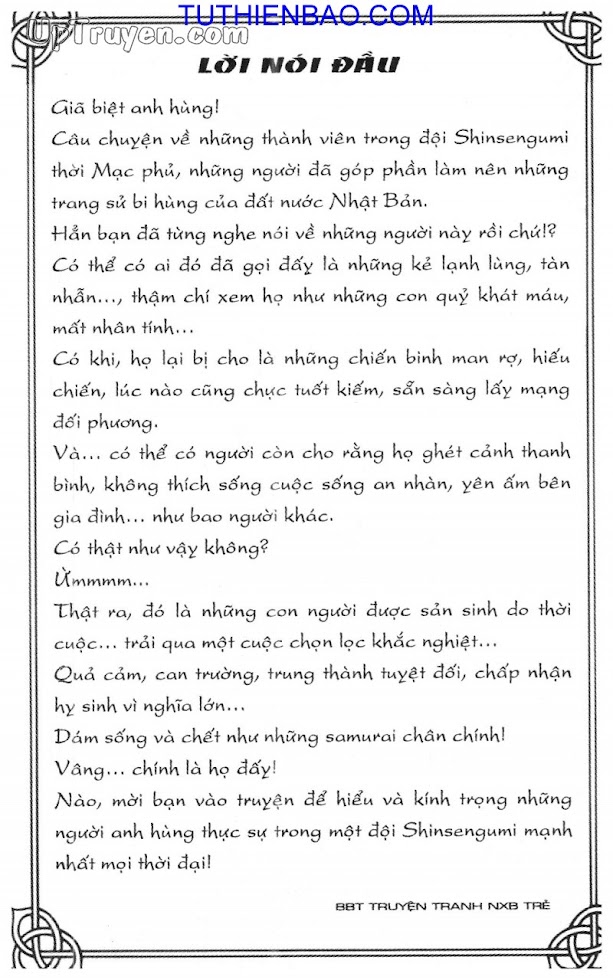 TUTHIENBAO.COM
UpTruyen.com
LỜI NÓI ĐẦU
Giã biệt anh hùng!
Câu chuyện về những thành viên trong đội Shinsengumi
thời Mạc phủ, những người đã góp phần làm nên những
trang sử bi hùng của đất nước Nhật Bản.
Hẳn bạn đã từng nghe nói về những người này rồi chứ!?
Có thể có ai đó đã gọi đấy là những kẻ lạnh lùng, tàn
nhẫn..., thậm chí xem họ như những con quỷ khát máu,
mất nhân tính...
Có khi, họ lại bị cho là những chiến binh man rợ, hiếu
chiến, lúc nào cũng chực tuốt kiếm, sẵn sàng lấy mạng
đối phương.
Và... có thể có người còn cho rằng họ ghét cảnh thanh
bình, không thích sống cuộc sống an nhàn, yên ấm bên
gia đình... như bao người khác.
Có thật như vậy không?
Ừmmmm...
Thật ra, đó là những con người được sản sinh do thời
cuộc... trải qua một cuộc chọn lọc khắc nghiệt...
Quả cảm, can trường, trung thành tuyệt đối, chấp nhận
hy sinh vì nghĩa lớn...
Dám sống và chết như những samurai chân chính!
Vâng... chính là họ đấy!
Nào, mời bạn vào truyện để hiểu và kính trọng những
người anh hùng thực sự trong một đội Shinsengumi mạnh
nhất mọi thời đại!
BBT TRUYỆN TRANH NXB TRẺ